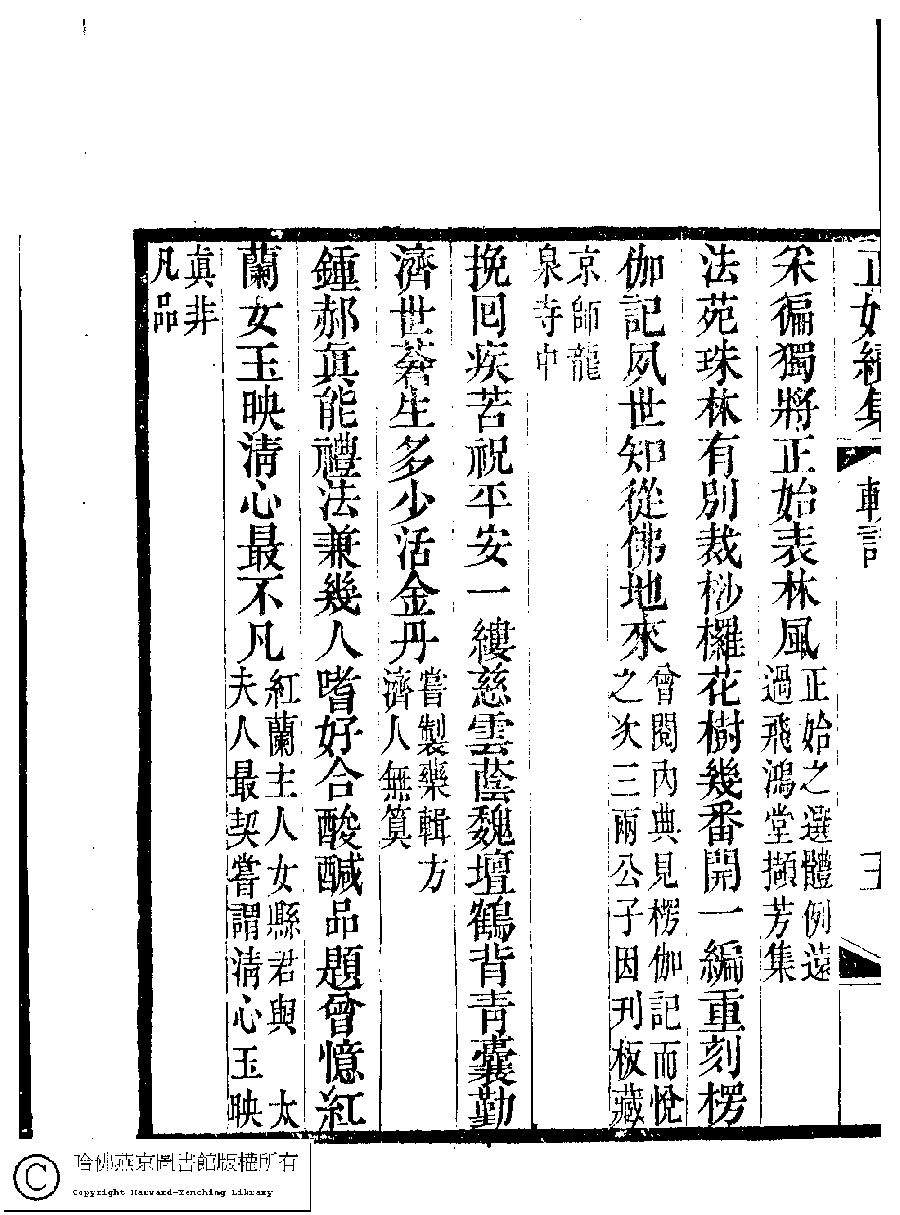 正始續集
輓詩
采徧獨將正始表林風正始之選體例遠
過飛鴻堂擷芳集
法苑珠林有別裁桫欏花樹幾番開一編重刻楞
伽記夙世知從佛地來曾閱內典見楞伽記而悅
之次三兩公子因刊板藏
京師龍
泉寺中
挽回疾苦祝平安一縷慈雲蔭魏壇鶴背青囊勤
濟世蒼生多少活金丹嘗製藥輯方
濟人無算
鍾郝眞能禮法兼幾人嗜好合酸鹹品題曾憶紅
蘭女玉映淸心最不凡紅蘭主人女縣君與 太
夫人最契嘗謂淸心玉映
眞非
凡品
哈佛燕京圖書館版權所有
Copyright Harvard-Yenching Library